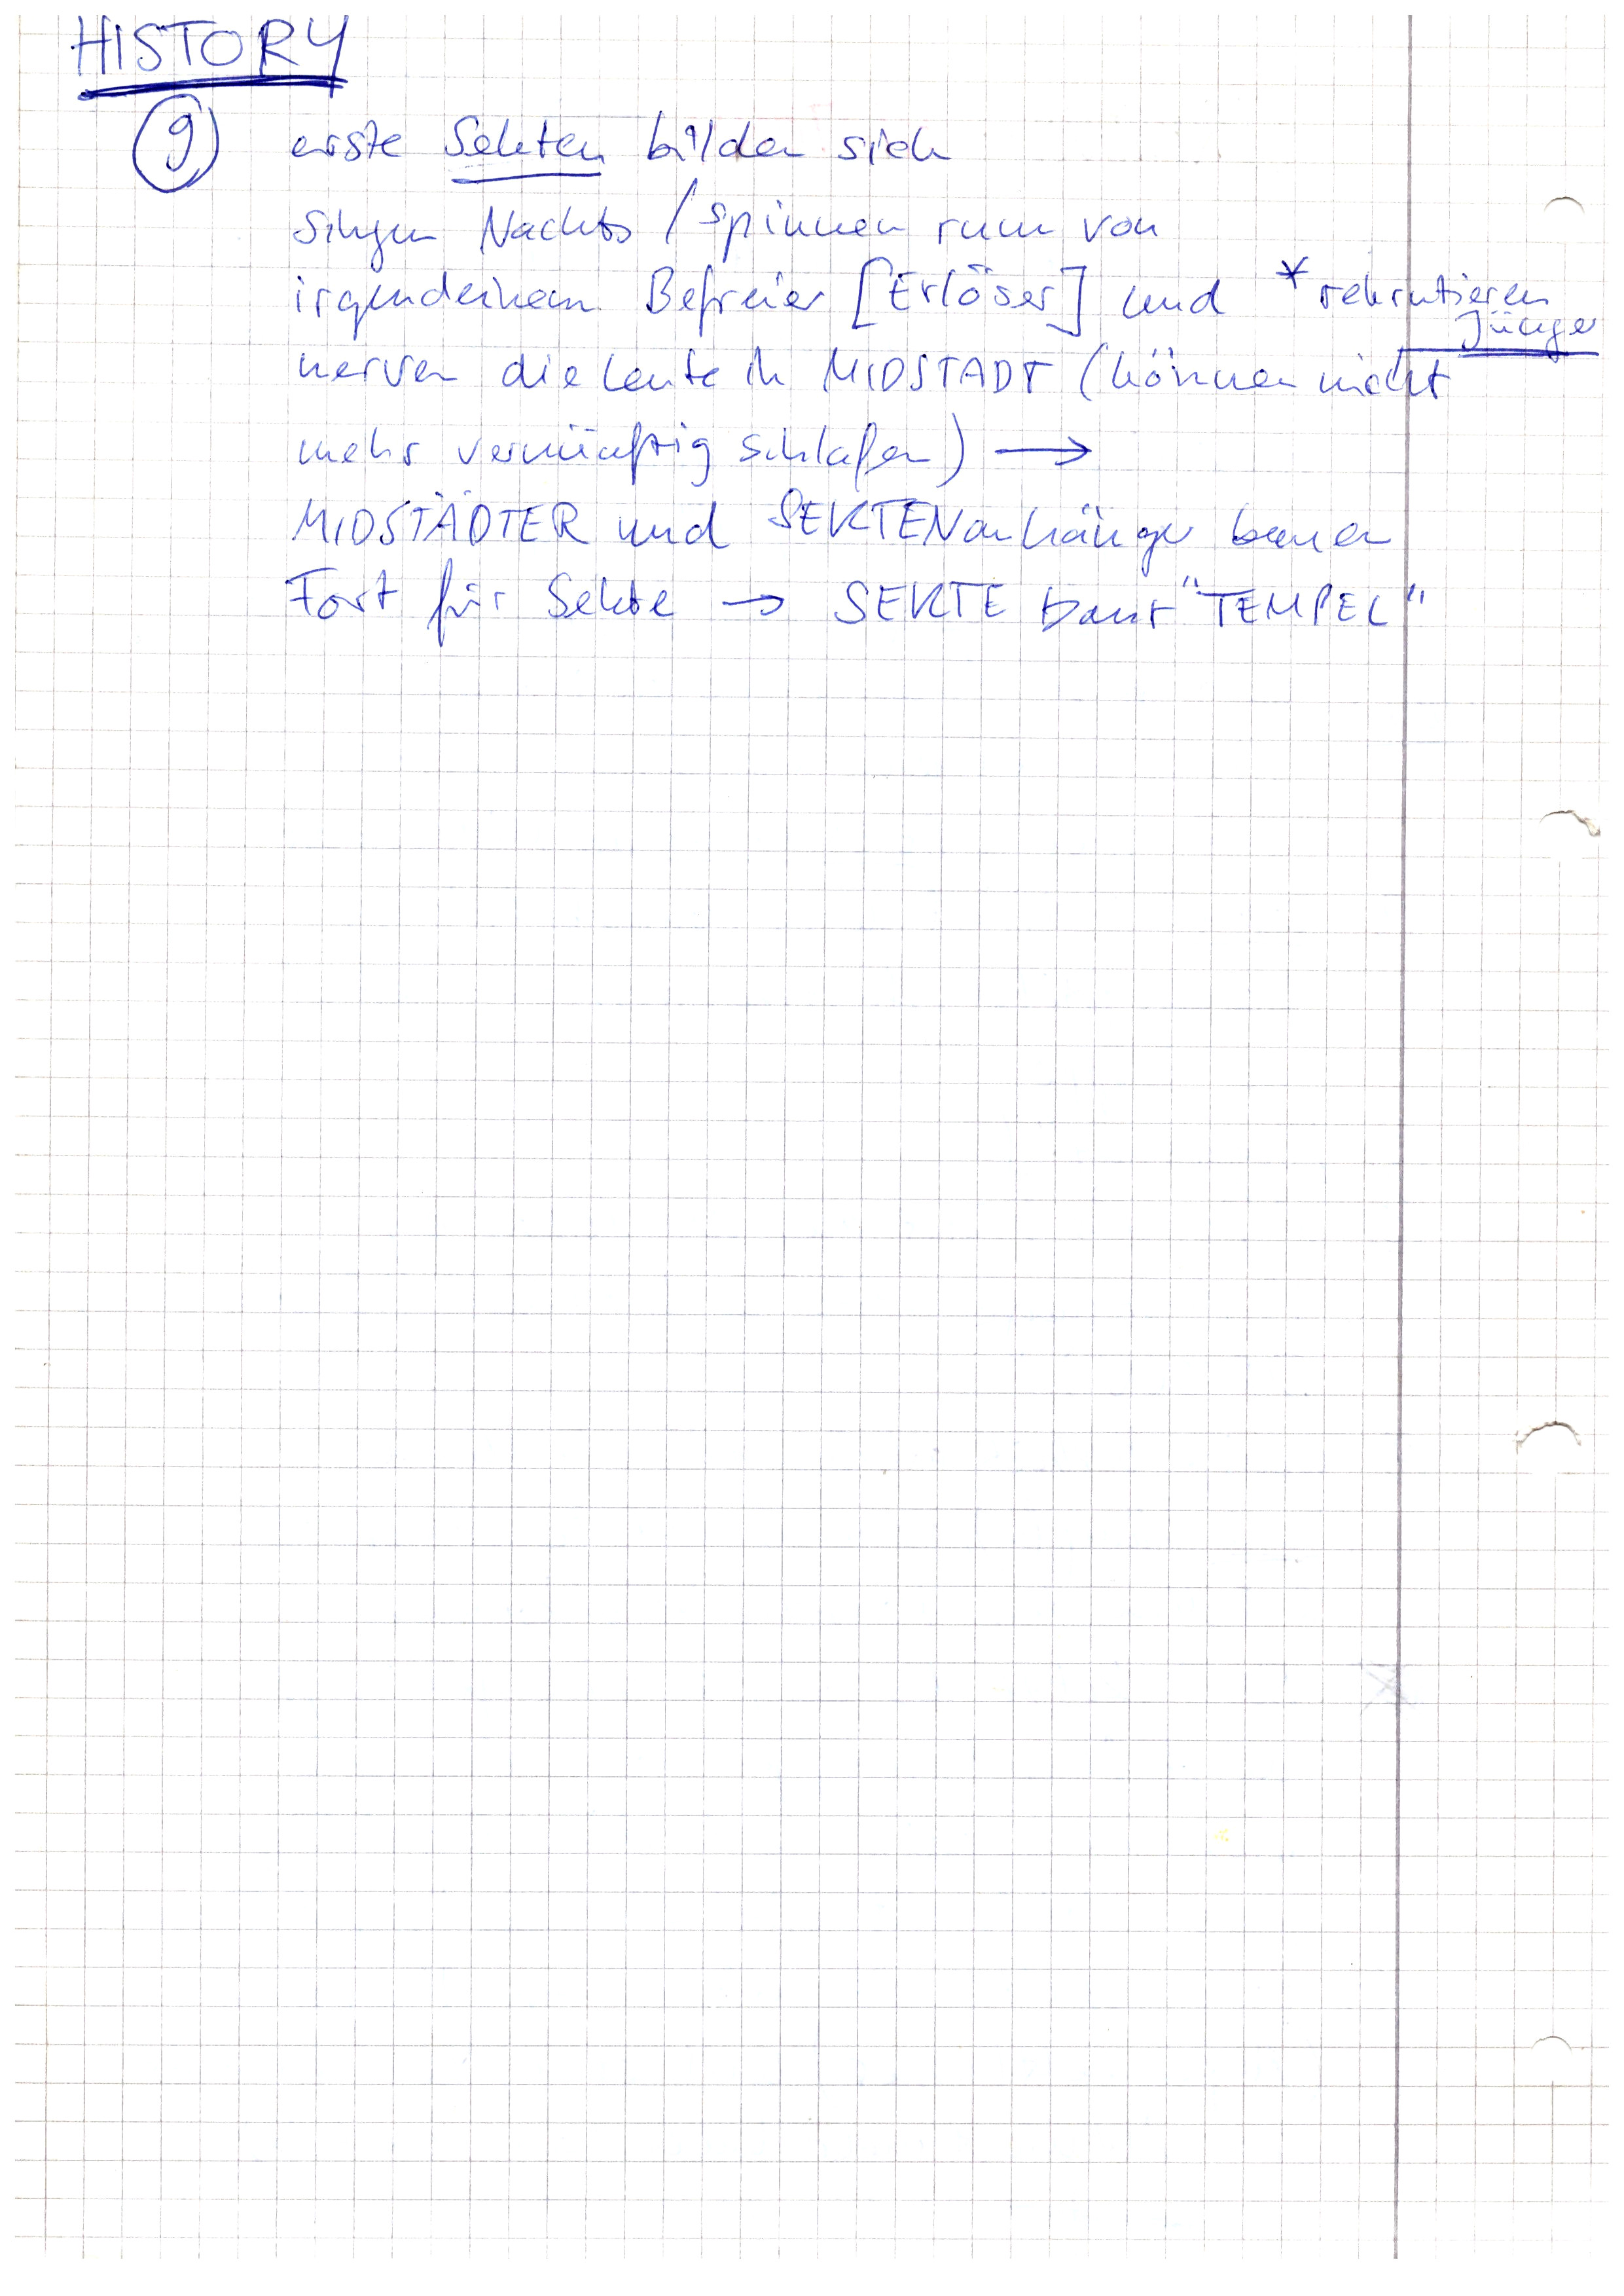 HISTORY
9 erste Sekten bilden sich
singen Nachts / spinnen rum von
irgendeinem Befreier [Erlöser] und * rekrutieren
Jünger
nerven die Leute in MIDSTADT (können nicht
mehr vernünftig schlafen) →
MIDSTÄDTER und SEKTENanhänger bauen
Fort für Sekte → SEKTE baut "TEMPEL"